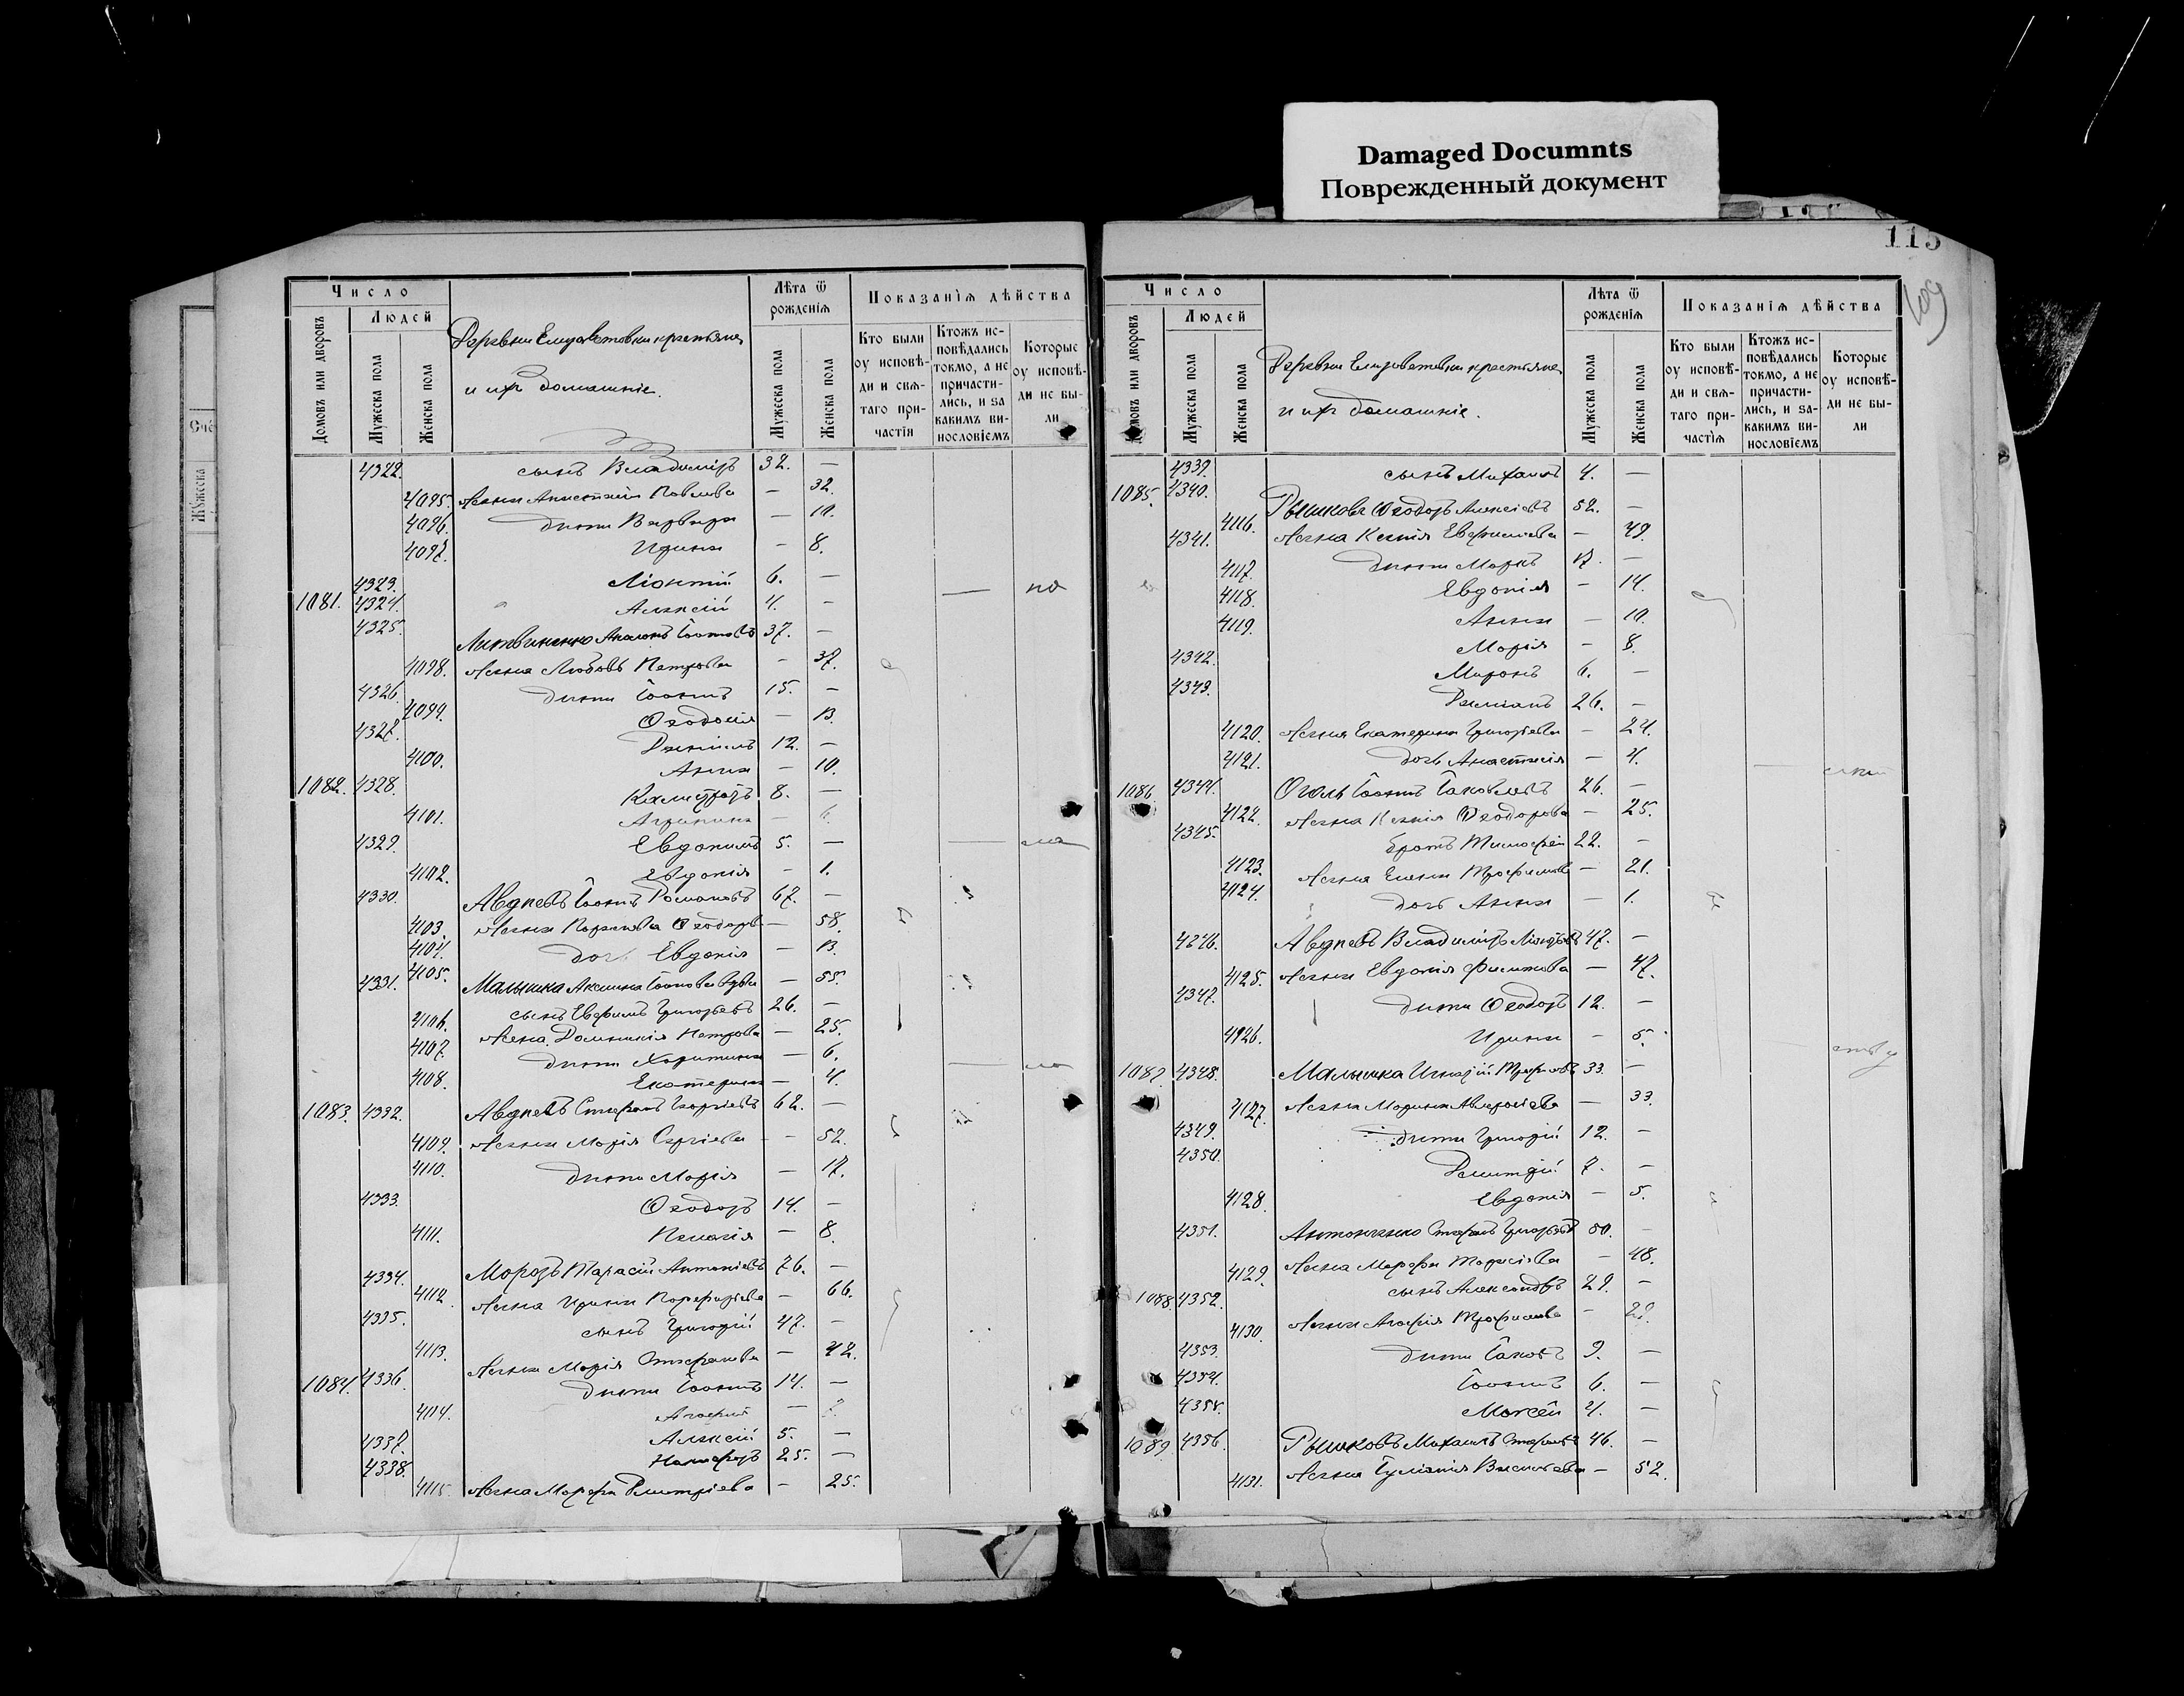 Damaged Documnts
Поврежденный документ
115
109
Число
Людей
Домовъ или дворовъ
Мужеска пола
Женска пола
Деревни Елизаветовки крестьяне
и ихъ домашніе.
Лѣта ѿ рожденія
Мужеска пола
Женска пола
Показанїѧ дѣйства
Кто были оу исповѣди и свѧтаго причастїѧ
Ктожъ исповѣдались токмо, а не причастились, и за какимъ винословїемъ
Которые оу исповѣди не были
4322. сынъ Владиміръ 32. —
4095. жена Анастасія Павлова — 32.
4096. дѣти Варвара — 10.
4097. Ирина — 8.
4323. Леонтій 6. —
1081. 4324. Алексій 4. — — по
4325. Литвиненко Іоанновъ 37. —
4098. жена Любовь Петрова — 37.
4326. дѣти Іоаннъ 15. —
4099. Ѳеодосія — 13.
4327. Даніилъ 12. —
4100. Анна — 10.
1082. 4328. Калистратъ 8. —
4101. Агрипина — 6.
4329. Евдокимъ 5. —
4102. Евдокія — 1.
4330. Авдѣевъ Іоаннъ Романовъ 67. —
4103. жена Ѳеодоров. — 58.
4104. дочь Евдокія — 13.
4331. 4105. Малышка Акилина Іоаннова вдова — 55.
сынъ Евфимъ Григорьевъ 26. —
4106. жена Домникія Петрова — 25.
4107. дѣти Харитина — 6.
4108. Екатерина — 4.
1083. 4332. Авдѣевъ Стефанъ Георгіевъ 62. —
4109. жена Марія Сергіева — 52.
4110. дѣти Марія — 17.
4333. Ѳеодоръ 14. —
4111. Пелагія — 8.
4334. Морозъ Тарасій Антоніевъ 76. —
4112. жена Ирина Порфирьева — 66.
4335. сынъ Григорій 47. —
4113. жена Марія Стефанова — 42.
1084. 4336. дѣти Іоаннъ 14. —
4114. Агафія —
4337. Алексій 5. —
4338. Никифоръ 25. —
4115. жена Марфа Димитріева — 25.
Число
Людей
Домовъ
Мужеска пола
Женска пола
Деревни Елизаветовки крестьяне
и ихъ домашніе.
Лѣта ѿ рожденія
Мужеска пола
Женска пола
Показанїѧ дѣйства
Кто были оу исповѣди и свѧтаго причастїѧ
Ктожъ исповѣдались токмо, а не причастились, и за какимъ винословїемъ
Которые оу исповѣди не были
4339. сынъ Михаилъ 4. —
1085. 4340. Рышковъ Ѳеодоръ Алексіевъ 52. —
4116. жена Ксенія Евфимова — 49.
4341. дѣти Маркъ 17. —
4117. Евдокія — 14.
4118. Анна — 10.
4119. Марія — 8.
4342. Миронъ 6. —
4343. Даміанъ 26. —
4120. жена Екатерина Григорьева — 24.
4121. дочь Анастасія — 4.
1086. 4344. Оголь Іоаннъ Іаковлевъ 26. —
4122. жена Ксенія Ѳеодорова — 25.
4345. братъ Тимофей 22. —
4123. жена Елена Трофимова — 21.
4124. дочь Анна — 1.
4246. Авдѣевъ Владиміръ 47. —
4125. жена Евдокія Филипова — 47.
4347. дѣти Ѳеодоръ 12. —
4126. Ирина — 5.
1087. 4348. Малышка Игнатій Трофимовъ 33. —
4127. жена Марина — 33.
4349. дѣти Григорій 12. —
4350. Димитрій 7. —
4128. Евдокія — 5.
4351. Антоненко Стефанъ Григорьевъ 50. —
4129. жена Марфа Тарасіева — 48.
1088. 4352. сынъ Александръ 29. —
4130. жена Агафія Трофимова —
4353. дѣти Іаковъ 9. —
4354. Іоаннъ 6. —
4355. Моисей 4. —
1089. 4356. Рышковъ Михаилъ Стефановъ 46. —
4131. жена Іуліанія Васильева — 52.